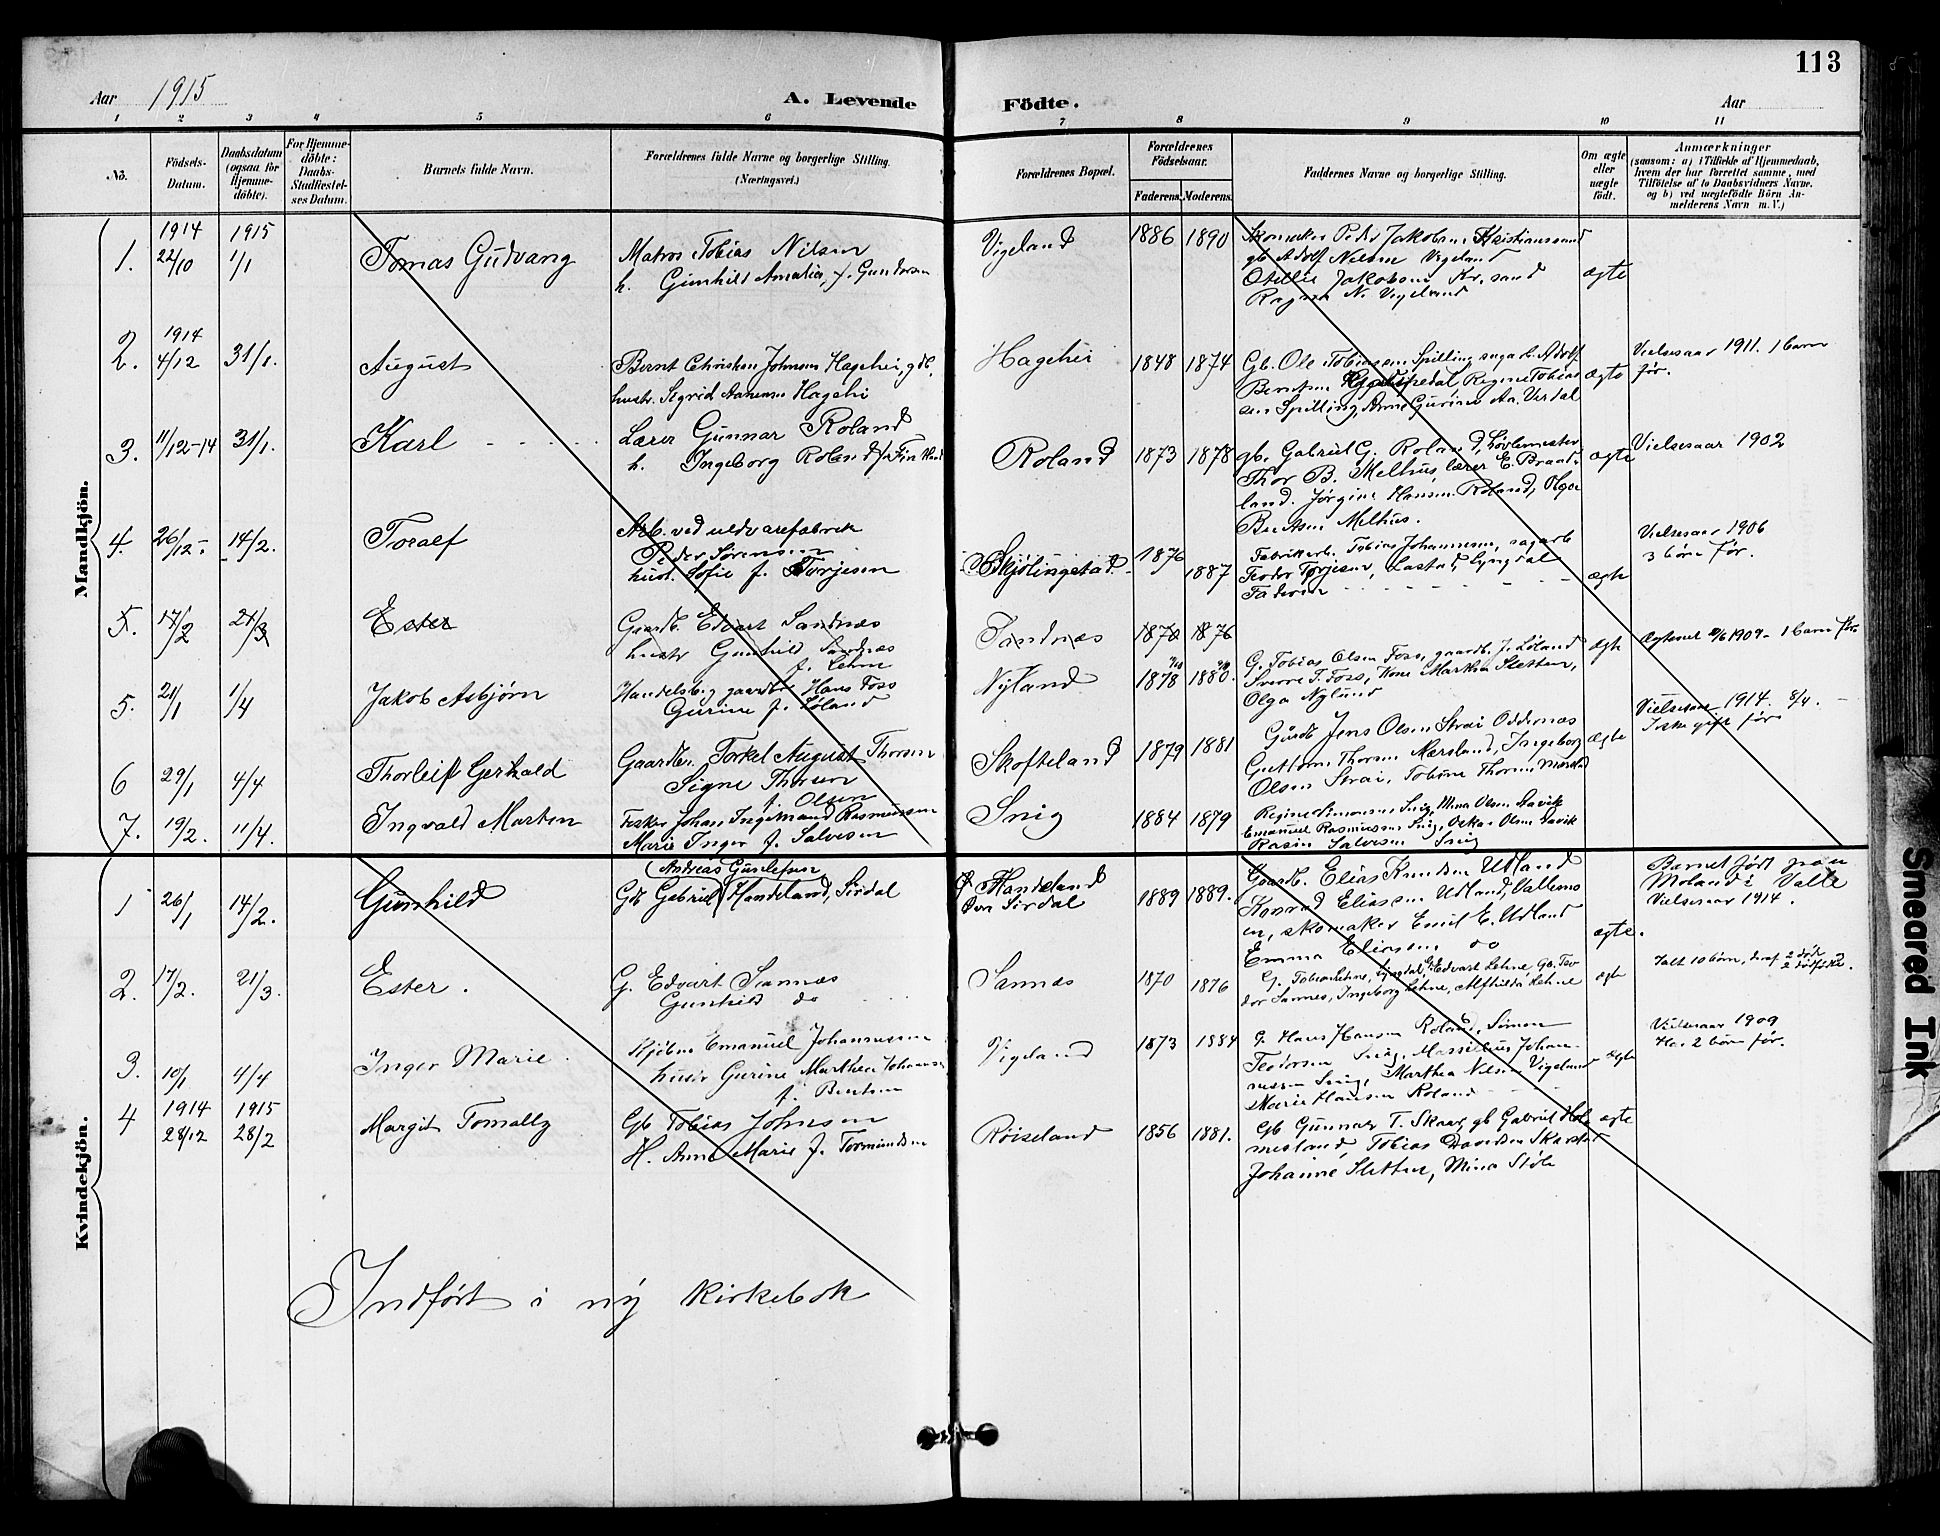 113
Aar 1915
A. Levende
Födte.
Aar
1 2 3 4 5 6 7 8 9 10 11
No.
Födsels-Datum.
Daabsdatum (ogsaa for Hjemme-döbte).
For Hjemme-döbte: Daabs-Stadfæstel-ses Datum.
Barnets fulde Navn.
Forældrenes fulde Navne og borgerlige Stilling.
(Næringsvei.)
Forældrenes Bopæl.
Forældrenes Födselsaar.
Faderens. Moderens.
Faddernes Navne og borgerlige Stilling.
Om ægte eller uægte födt.
Anmærkninger
(saasom: a) i Tilfælde af Hjemmedaab,
hvem der har forrettet samme, med
Tilföielse af to Daabsvidners Navne.
og b) ved uægtefödte Börn An-
melderens Navn m. V.)
Mandkjön.
1. 1914 22/10 1915 1/1 Tomas Gudvang
Matros Tobias Nilsen
h. Gunhild Amalie, f. Gundersen
Vigeland 1886 1890
Skomaker Peder Jakobsen Kristianssand
gb Adolf Nilsen Vigeland
Otillie Jakobsen Kr. sand
Ragna N. Vigeland
ægte
2. 1914 4/12 31/1. August
Bernt Christian Johnsen Hagehei, gdb.
hustr. Sigrid Hagehei
Hagehei 1848 1874
Gb. Ole Tobiassen Spilling Adolf
Berntsen Regine Tobias
sen Spilling, Anne Gurine Aa.
ægte
Vielsesaar 1911. 1 barn
før.
3. 11/12-14 31/1. Karl
Lærer Gunnar Roland
h. Ingeborg Roland f.
Roland 1873 1878
gb. Gabriel G. Roland,
Thor B. Melhus, lærer E. Braad-
land. Jørgine Hansen Roland, Olga
Melhus.
ægte
Vielsesaar 1902
4. 26/12. 14/2. Toralf
Arb. ved uldvarefabrik
Peder Sørensen
hust. Sofie f. Torjesen
Skjølingstad. 1876 1887
Fabrikarb. Tobias Johannesen, sagarb
Teodor Torjesen, Lyngdal
Faderen
ægte
Vielsesaar 1906
3 børn før.
5. 17/2 21/3 Ester
Gaardb. Edvart Sandnæs
hustr Gunhild Sandnæs
f. Lehne
Sandnæs 1870 1876
ægte
1 barn før
5. 21/1 1/4 Jakob Asbjørn
Handelsb. gaardbr Hans Foss
Gurine f. Løland
Nyland 1878 1880.
G. Tobias Olsen Foss, gaardb. J. Løland
Sverre T. Foss, Kone Martha Sletten,
Olga Nylund
Vielsesaar 1914. 8/4.
Ikke gift før
6 29/1 4/4 Thorleif Gerhald
Gaardbr. Torkel August Thorsen
Signe Thorsen
f. Olsen
Skofteland 1879 1881
Gdsb Jens Olsen Strai Oddernæs
Guttorm Thorsen Ingeborg
Olsen Strai, Tobine Thorsen
ægte
7. 19/2. 11/4. Ingvald Marton
Fisker Johan Ingemand Rasmussen
Marie Inger f. Salvesen
Snig 1884 1879
Regine Simonsen Snig, Mina Olsen
Emanuel Rasmussen Snig, Oskar Olsen
Rasin Salvesen Snig
Kvindekjön.
1 26/1 14/2. Gunhild
Andreas Gunlefsen
Gb Gabriel Handeland, Sirdal
Handeland
Øvr Sirdal 1889 1889.
Gaardb. Elias Knudsen Udland
Konrad Eliassen Udland,
skomaker Emil E. Udland
Emma Eliasen do
ægte.
Barnet født paa
Moland i Valle
Vielsesaar 1914.
2. 17/2. 21/3. Ester.
G. Edvart Sannæs
Gunhild do
Sannæs 1870 1876
G. Tobias Lehne, Lyngdal, G. Edvart Lehne, Gb. Teo-
dor Sannes, Ingeborg Lehne, Alfhilda Lehne
ægte
Ialt 10 børn, deraf 2 døde
2 dødfødte.
3. 10/1 4/4 Inger Marie.
Kjøbm Emanuel Johannessen
hustr Gurine Marthea Johannesen
f. Berntsen
Vigeland 1873 1884
G. Hans Hansen Roland, Simon
Teodorsen Snig, Masselius Johan-
nessen Snig, Marthea Nilsen Vigeland
Marie Hansen Roland
ægte
Vielsesaar 1909
Har 2 børn før.
4 1914 28/12 1915 28/2 Margit Tomally
Gb Tobias Johnsen
H. Anne Marie f. Tormundsen
Røiseland 1856 1881.
Gb Gunnar T. Skaar, gb Gabriel Hol-
mesland, Tobias Davidsen
Johanne Sletten, Mina Støle
ægte
Indført i ny Kirkebok
Smeared Ink